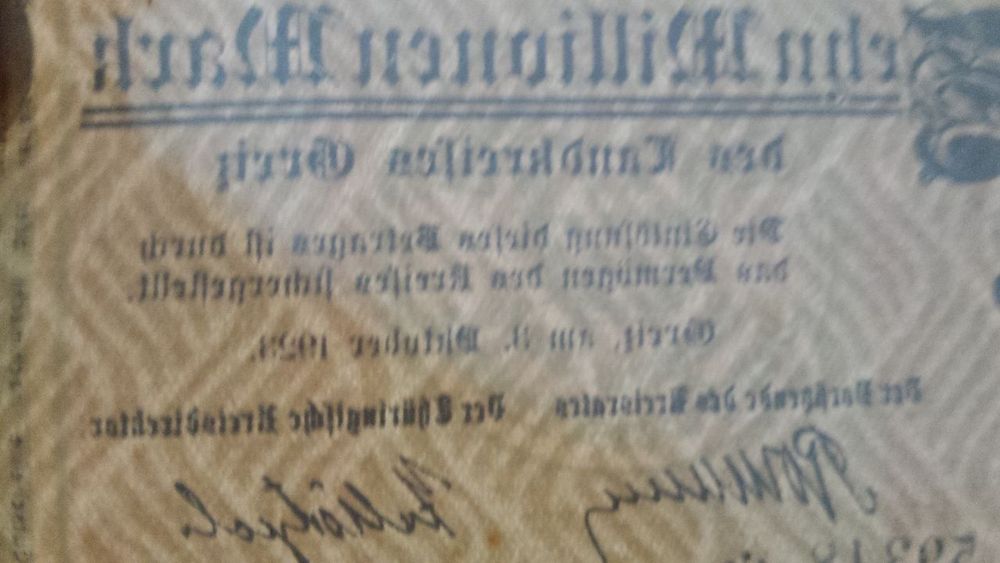 ehn Millionen Mark
des Landkreises Greiz
Die Einlösung dieses Betrages ist durch
das Vermögen des Kreises sichergestellt.
Greiz, am 3. Oktober 1923.
Der Vorsitzende des Kreisrates Der Thüringische Kreisdirektor